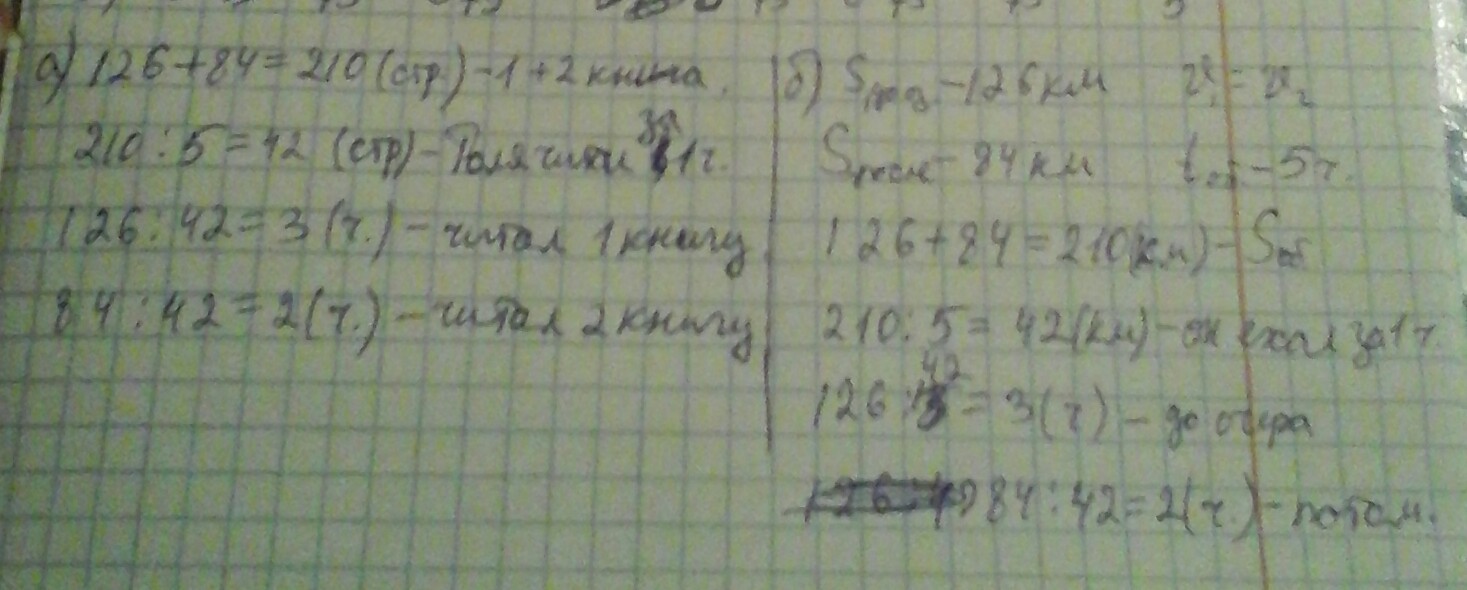 а) 126+84=210 (стр.) - 1 + 2 книга.
210 : 5 = 42 (стр) - Толя читал за 1 г.
126 : 42 = 3 (ч.) - читал 1 книгу
84 : 42 = 2 (ч.) - читал 2 книгу
б) S - 126 км V₁ = V₂
S - 84 км t об - 5 ч.
126+84=210(км) - S об
210 : 5 = 42(км) - он ехал за 1 ч
126 : 42 = 3 (ч) - до озера
84 : 42 = 2(ч.) - потом.